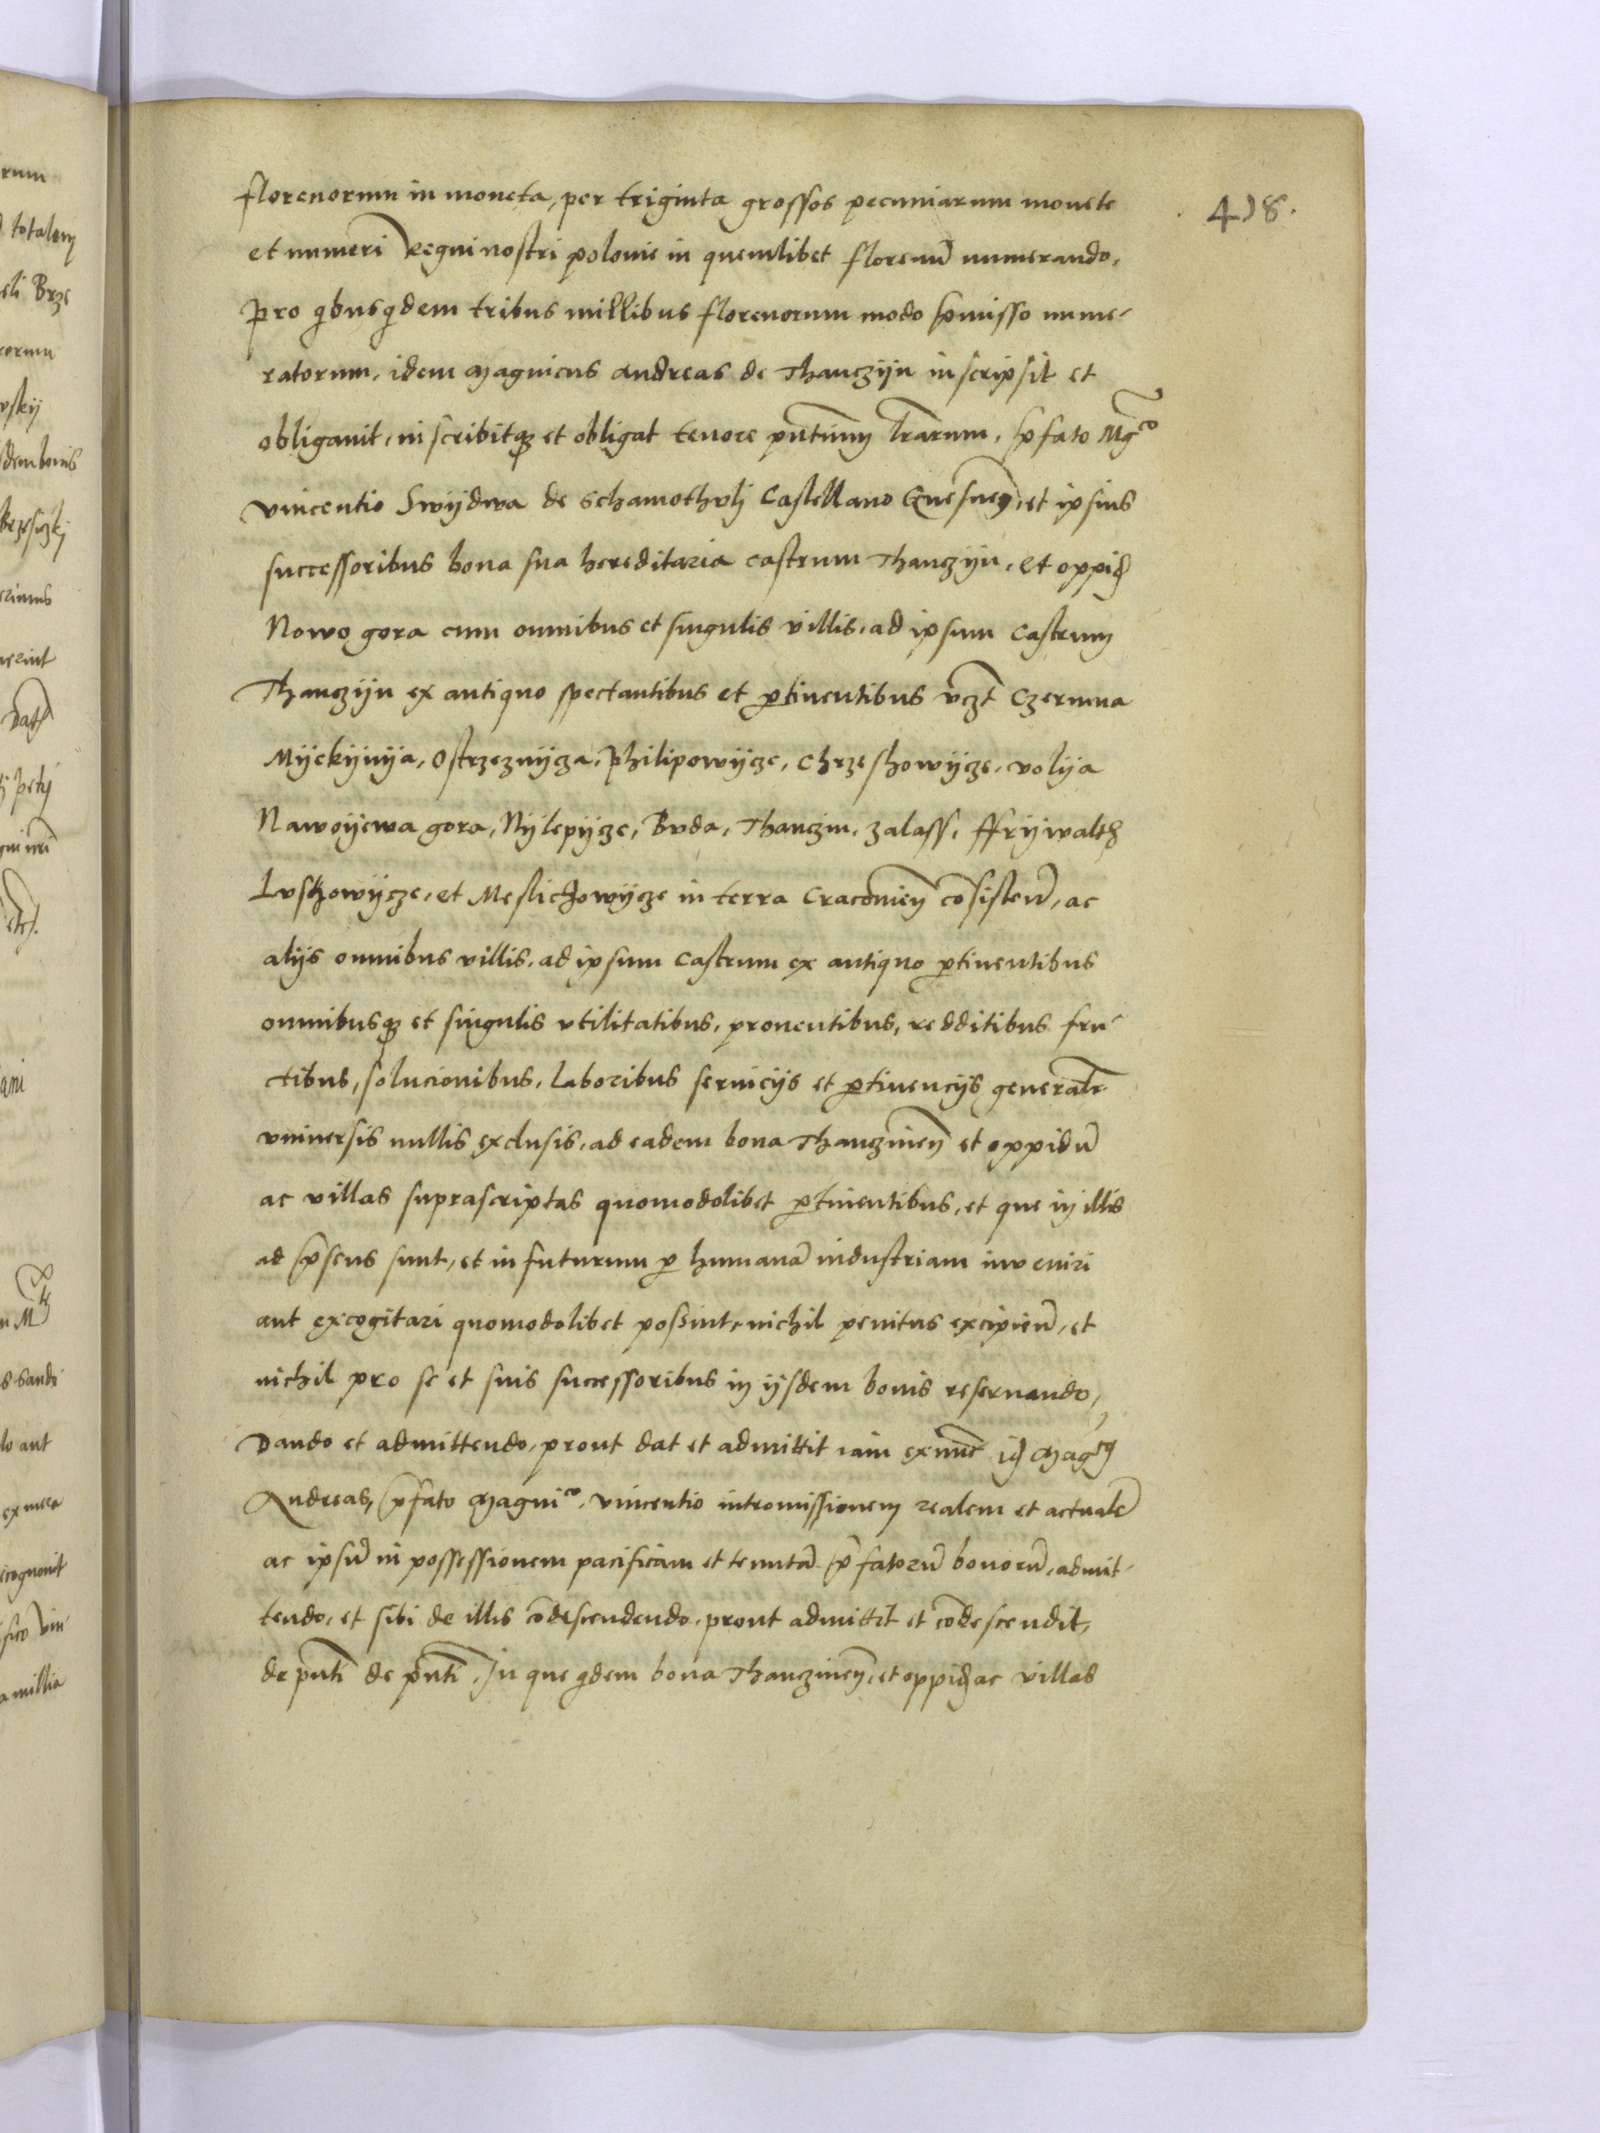 florenorum in moneta, per triginta grossos pecuniarum monete
. 418 .
et numeri Regni nostri polonie in quemlibet florenū numerando,
Pro qibusqidem tribus millibus florenorum modo p̄misso nume-
ratorum, idem Magnicus Andreas de Thanczijn inscripsit et
obligauit, inscribitqꝫ et obligat tenore pn̄tium lr̄arum, p̄fato Mgco
Vincentio Swijdwa de Schamothvlj Castellano Gnesnen̄, et ipsius
successoribus bona sua hereditaria castrum Thanczijn, et oppid
Nowo gora cum omnibus et singulis villis, ad ipsum Castrum
Thanczijn ex antiquo spectantibus et ꝑtinentibus vczt Czernna
Mijckijnija, Ostrzeznijcza, Philipowijcze, Chrzeshowijcze, volija
Nawoijewa gora, Nijlepijcze, Bvda, Thanczin, Zalass, Ffrijwalth
Lvskowijcze, et Meslichowijcze in terra Cracouien̄ cōsisten̄, ac
alijs omnibus villis, ad ipsum Castrum ex antiquo ꝑtinentibus
omnibusqꝫ et singulis vtilitatibus, prouentibus, redditibus fru-
ctibus, solucionibus, laboribus seruicijs et ꝑtinencijs generalr
vniuersis nullis exclusis, ad eadem bona Thanczinen̄ et oppidū
ac villas suprascriptas quomodolibet ꝑtinentibus, et que in illis
ad p̄sens sunt, et in futurum ꝑ humanā industriam inveniri
aut excogitari quomodolibet possint, nichil penitus excipien̄, et
nichil pro se et suis successoribus in ijsdem bonis reseruando,
Dando et admittendo, prout dat et admittit iam exnūc id Magcus
Andreas, p̄fato Magnico. Vincentio intromissionem realem et actualē
ac ipsū in possessionem pacificam et tenutā p̄fatorū bonorū, admit-
tendo, et sibi de illis cōdescendendo, prout admittit et cōdescendit,
de pn̄ti de pn̄ti, In que qdem bona Thanczinen̄, et oppid ac villas